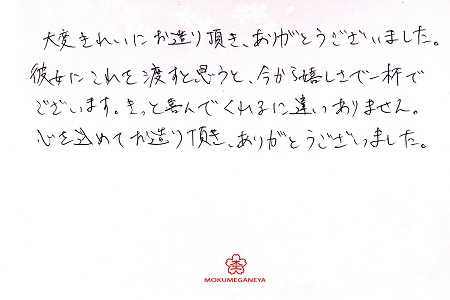 大変きれいにお造り頂き、ありがとうございました。
彼女にこれを渡すと思うと、今から嬉しさで一杯で
ございます。きっと喜んでくれるに違いありません。
心を込めてお造り頂き、ありがとうございました。
杢
MOKUMEGANEYA